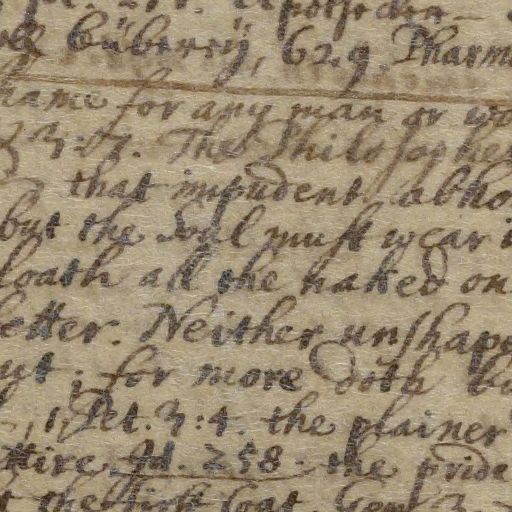 büberrÿ, 629. Pharm
hame for any man or wo
33:7. The Philosopher
that impudent, abho
but the soul must wear i
loath all the naked on
etter. Neither unshape
ut; for more doth b
1. Pet. 3:4. the plainer
ttire. Id. 258. the pride
the first Coat. Gen. 3